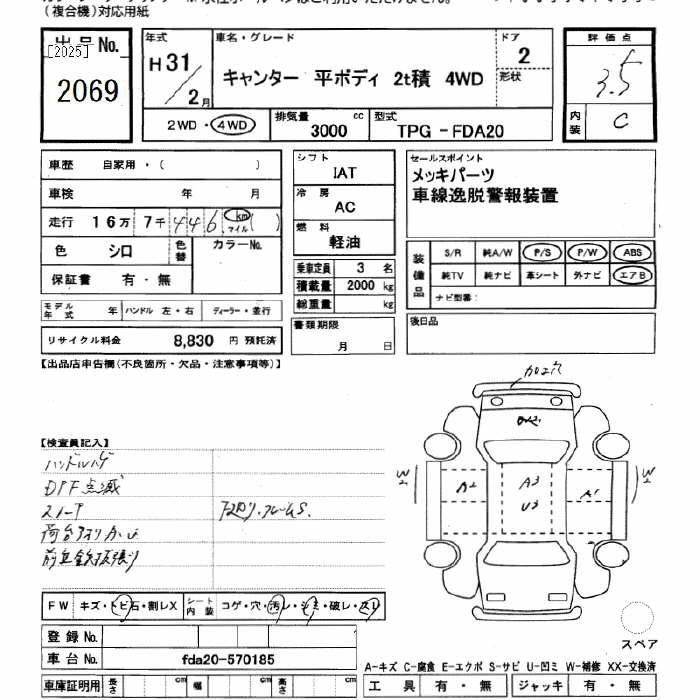 (複合機)対応用紙
出品No.
[2025]
2069
年式
H31/2月
車名・グレード
キャンター 平ボディ 2t積 4WD
ドア
2
形状
評価点
3.5
内装
C
2WD・4WD
排気量
3000 cc
型式
TPG-FDA20
車歴 自家用・( )
車検 年 月
走行 16万7千446 km マイル ( )
色 シロ
色替
カラーNo.
保証書 有・無
モデル年式 年
ハンドル 左・右
ディーラー・並行
リサイクル料金 8,830 円 預託済
シフト
IAT
冷房
AC
燃料
軽油
乗車定員 3 名
積載量 2000 kg
総重量 kg
書類期限
月 日
セールスポイント
メッキパーツ
車線逸脱警報装置
装備品
S/R 純A/W P/S P/W ABS
純TV 純ナビ 革シート 外ナビ エアB
ナビ型番:
後日品
【出品店申告欄(不良箇所・欠品・注意事項等)】
【検査員記入】
ハンドルハゲ
DPF点滅
W2
A2
A3
U3
A1
W2
FW キズ・トビ石・割レX
シート内装 コゲ・穴・汚レ・シミ・破レ・スレ
登録No.
車台No. fda20-570185
車庫証明用 長さ cm 幅 cm 高さ cm
スペア
A-キズ C-腐食 E-エクボ S-サビ U-凹ミ W-補修 XX-交換済
工具 有・無
ジャッキ 有・無